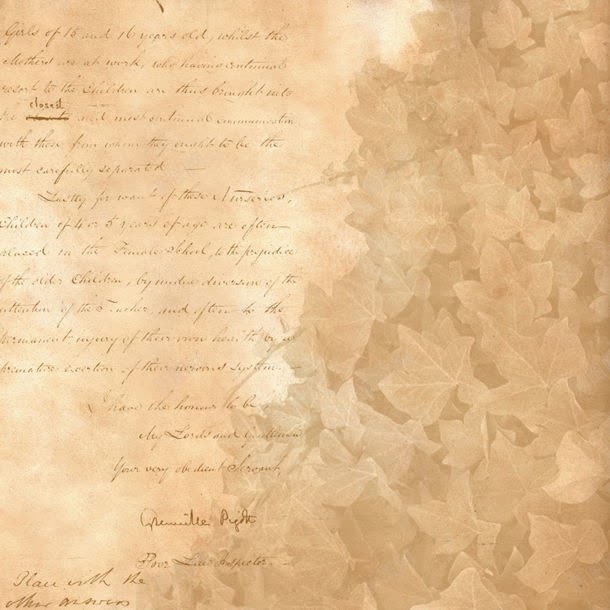 Girls of 15 and 16 years old, whilst the
Mothers are at work, who having continual
resort to the Children are thus brought into
the closest and most continual communication
with those from whom they ought to be the
most carefully separated. —
Lastly for want of these Nurseries,
Children of 4 or 5 years of age are often
placed in the Female School, to the prejudice
of the older Children, by undue diversion of the
attention of the Teacher, and often to the
permanent injury of their own health by a
premature exertion of their nervous system. —
I have the honour to be
My Lords and Gentlemen
Your very obedient Servant
Grenville Pigott
Poor Law Inspector. —
Place with the
other answers